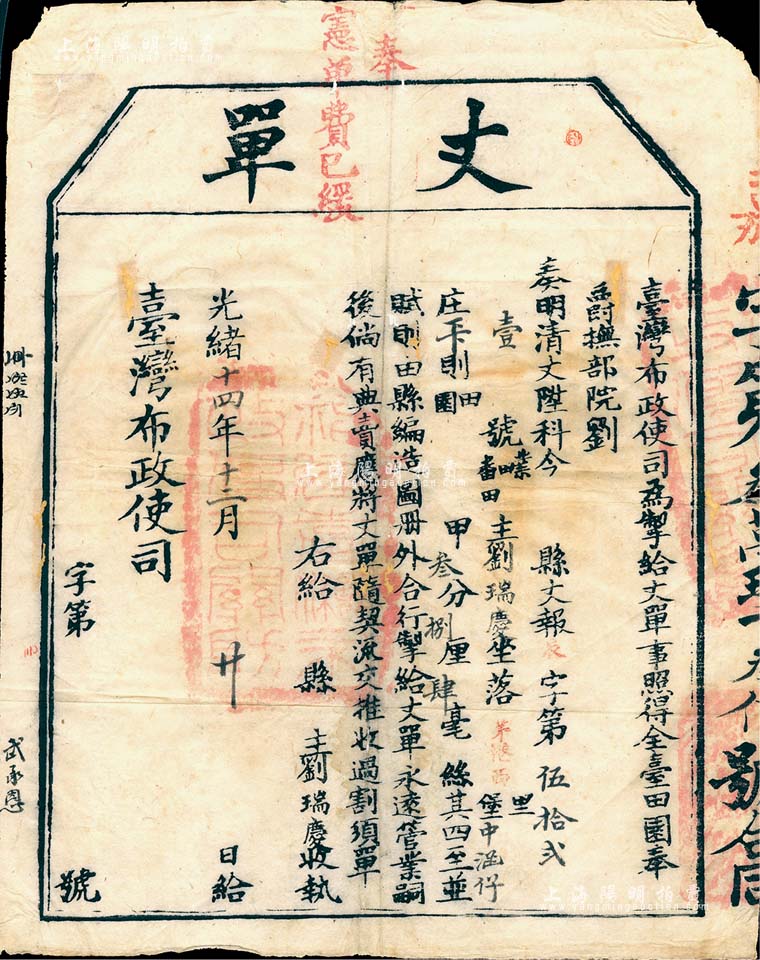 奉
憲單費已繳
丈單
臺灣布政使司為掣給丈單事照得全臺田園奉
爵撫部院劉
奏明清丈陞科今 縣丈報 字第伍拾弍
壹 號 業番田主劉瑞慶坐落茅港西堡里中洭仔
庄下則田園 甲叁分捌厘肆毫 絲其四至並
賦則由縣編造圖册外合行掣給丈單永遠管業嗣
後倘有典賣應將丈單隨契流交推收過割須單
右給 縣 主劉瑞慶收執
光緒十四年十二月 廿 日給
臺灣布政使司
字第 號
號合同
武承恩
上海陽明拍賣
www.yangmingauction.com
上海陽明拍賣
www.yangmingauction.com
上海陽明拍賣
www.yangmingauction.com